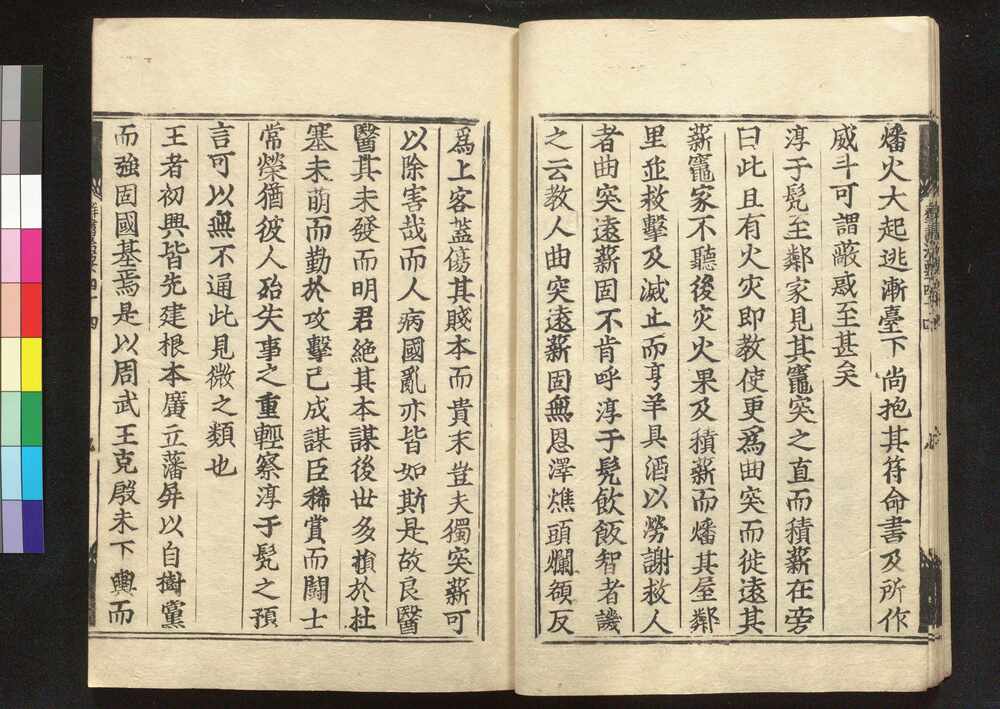 燔火大起逃漸臺下尚抱其符命書及所作
威斗可謂蔽惑至甚矣
淳于髡至鄰家見其竈突之直而積薪在旁
曰此且有火灾即教使更爲曲突而徙遠其
薪竈家不聽後灾火果及積薪而燔其屋鄰
里並救擊及滅止而亨羊具酒以勞謝救人
者曲突遠薪固不肯呼淳于髡飲飯智者譏
之云教人曲突遠薪固無恩澤燋頭爛頟反
爲上客蓋傷其賤本而貴末豈夫獨突薪可
以除害哉而人病國亂亦皆如斯是故良醫
醫其未發而明君絶其本謀後世多損於杜
塞未萌而勤於攻擊已成謀臣稀賞而鬪士
常榮猶彼人殆失事之重輕察淳于髡之預
言可以無不通此見微之類也
王者初興皆先建根本廣立藩屏以自樹黨
而強固國基焉是以周武王克殷未下輿而
群書治要四十四